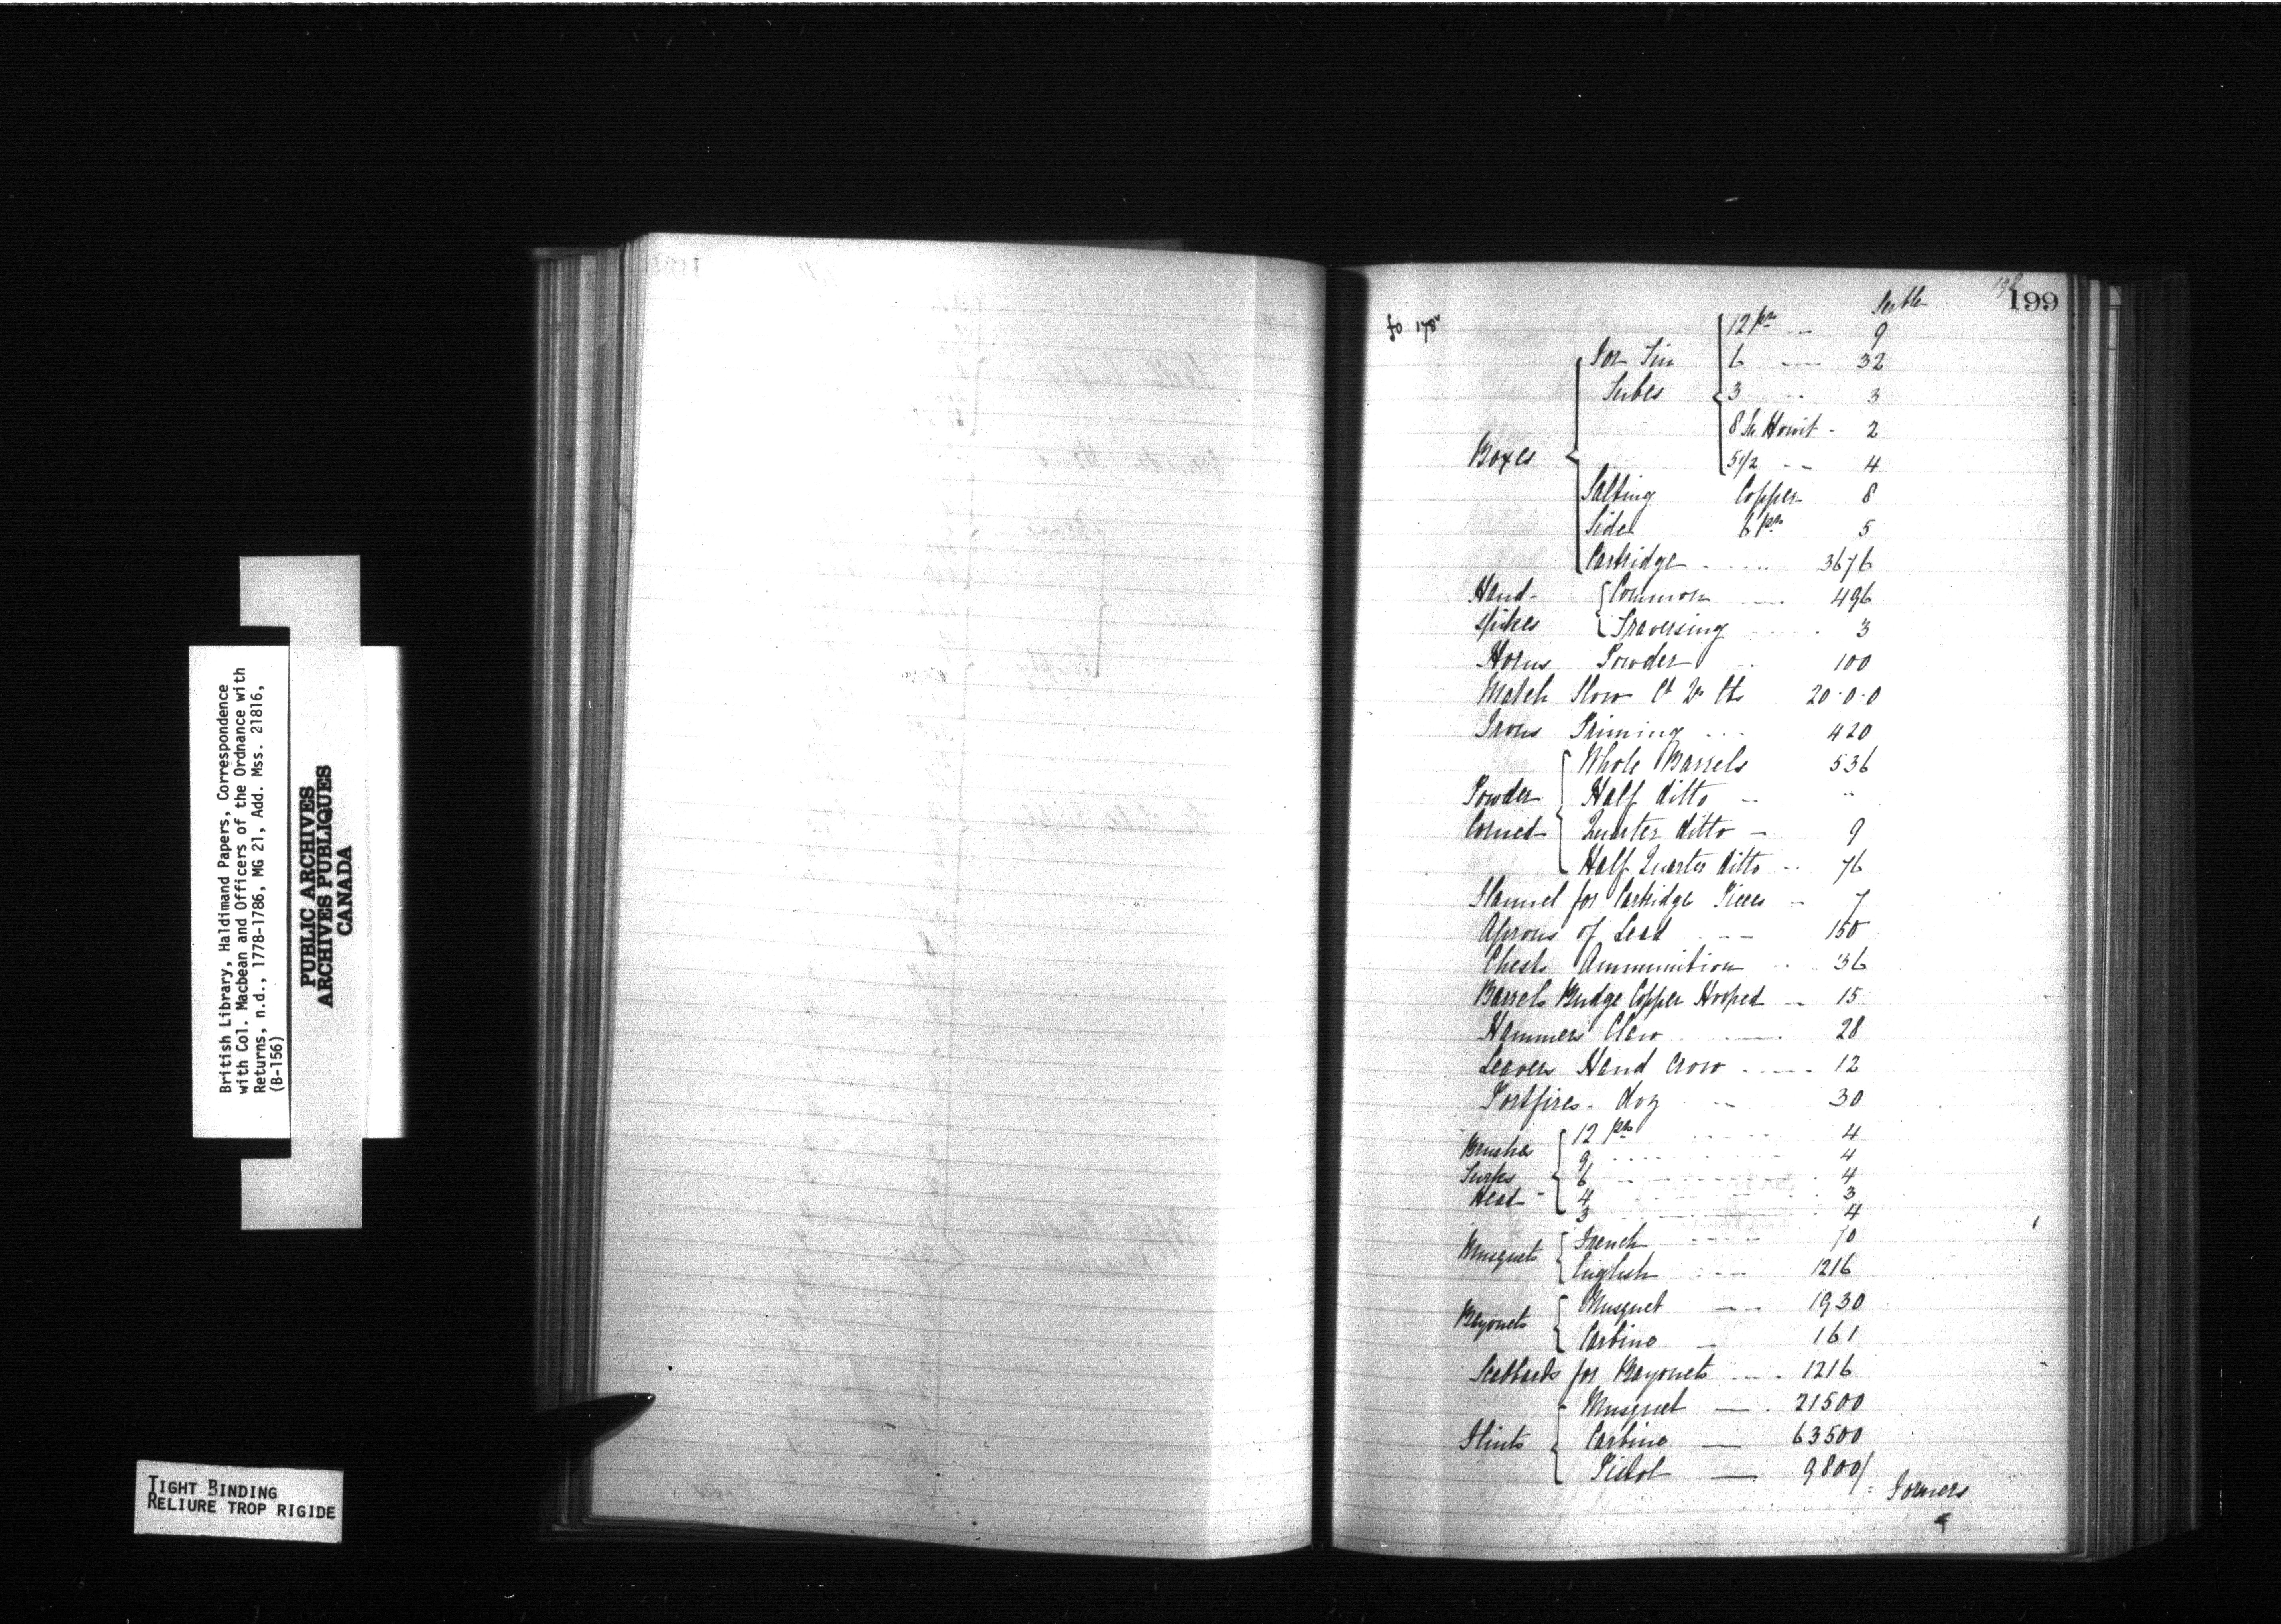 British Library, Haldimand Papers, Correspondence
with Col. Macbean and Officers of the Ordnance with
Returns, n.d., 1778-1786, MG 21, Add. Mss. 21816,
(B-156)
PUBLIC ARCHIVES
ARCHIVES PUBLIQUES
CANADA
TIGHT BINDING
RELIURE TROP RIGIDE
198
199
fo 178v
Serble
Boxes
For Tin Tubes
12 prs -- 9
6 -- 32
3 -- 3
8 In Howit - 2
5 1/2 -- 4
Salting Copper 8
Side 6 prs 5
Cartridge ---- 3676
Hand-spikes
Common --- 496
Traversing ---- 3
Horns Powder -- 100
Match Slow Ct Qr lbs 20.0.0
Irons Priming --- 420
Powder Corned
Whole Barrels 536
Half ditto -- "
Quarter ditto - 9
Half Quarter ditto -- 76
Flannel for Cartridge Pieces - 7
Aprons of Lead --- 150
Chests Ammunition -- 36
Barrels Budge Copper Hooped -- 15
Hammers Claw ---- 28
Leavers Hand Crow ---- 12
Portfires - doz -- 30
Brushes Turks Head -
12 prs ---- 4
9 ---- 4
6 ---- 4
4 ---- 3
3 ---- 4
Musquets
French ---- 70
English ---- 1216
Bayonets
Musquet --- 1930
Carbine - 161
Scabbards for Bayonets ---- 1216
Flints
Musquet --- 21500
Carbine -- 63500
Pistol -- 9800/
Formers